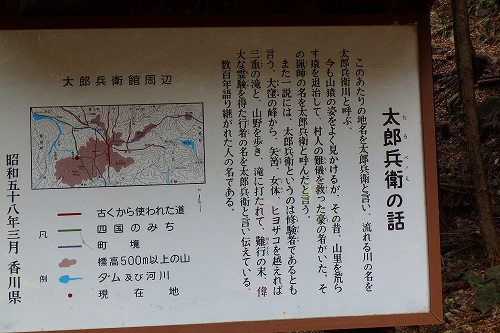 太郎兵衛の話
たろべえ
このあたりの地名を太郎兵衛と言い、流れる川の名を
太郎兵衛川と呼ぶ。
今も山猿の姿をよく見かけるが、その昔、山里を荒ら
す猿を退治して、村人の難儀を救った豪の者がいた。そ
の猟師の名を太郎兵衛と呼んだと言う。
また一説には、太郎兵衛というのは修験者であるとも
言う。大窪の峰から、矢筈、女体、ヒヨサコを越えれば
三重の滝と、山野を歩き、滝に打たれて、難行の末、偉
大な霊験を得た行者の名を太郎兵衛と言い伝えている。
数百年語り継がれた人の名である。
太郎兵衛館周辺
凡例
古くから使われた道
四国のみち
町境
標高500m以上の山
ダム及び河川
現在地
昭和五十八年三月 香川県